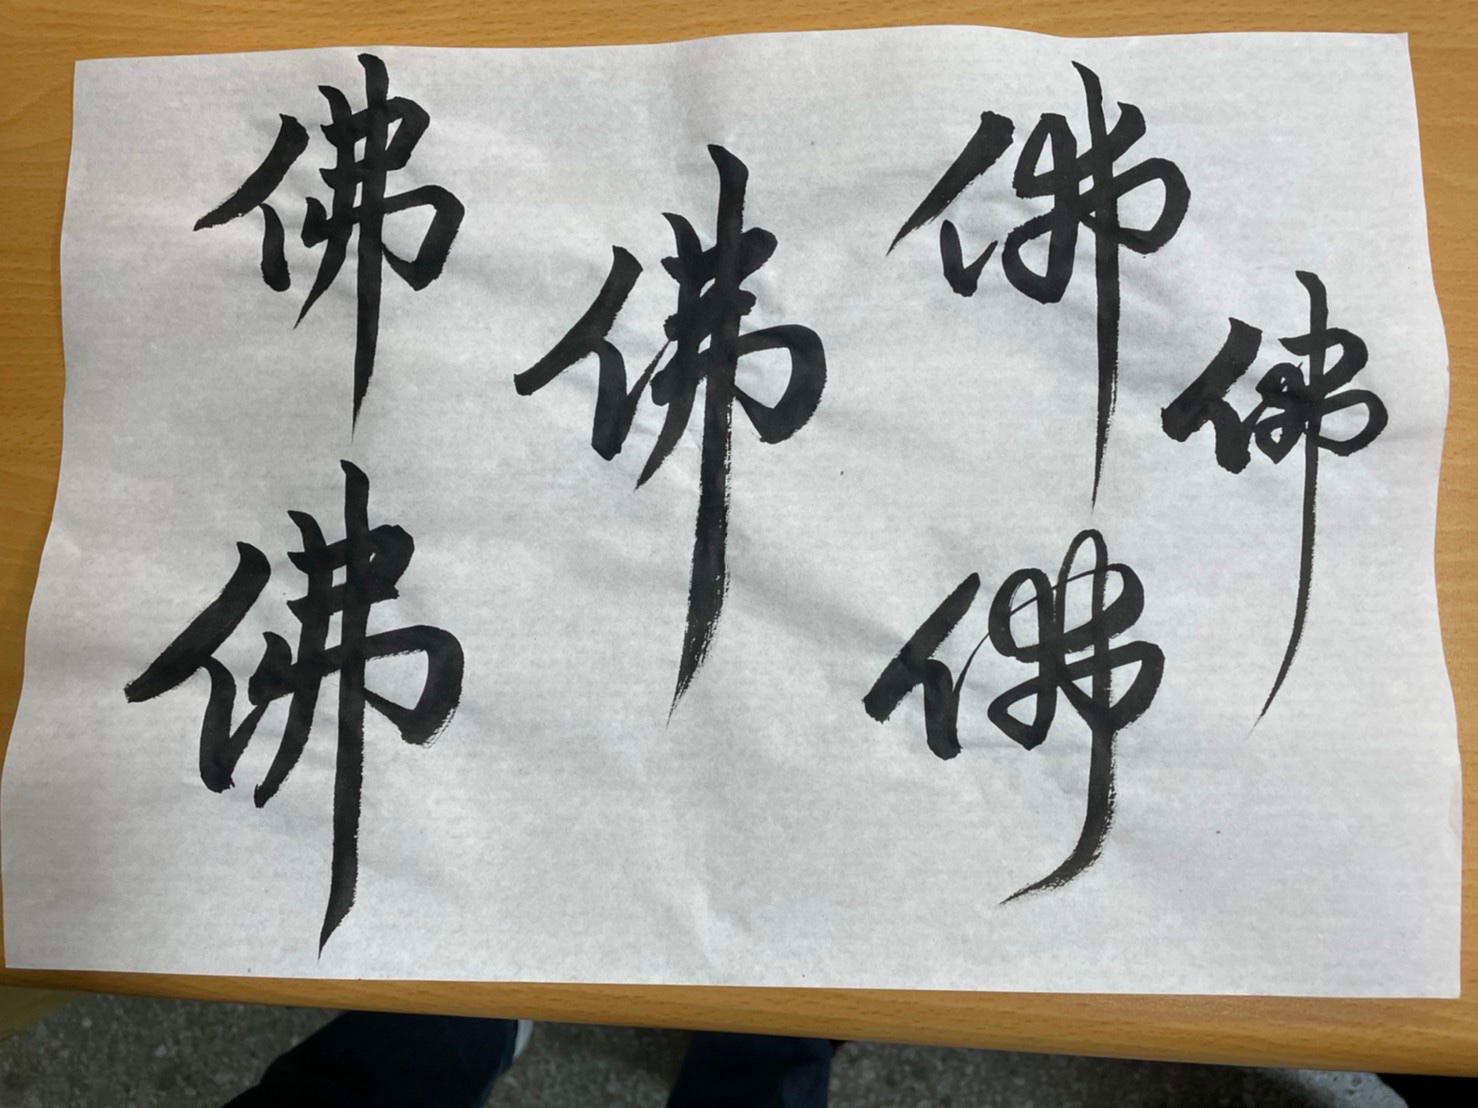 佛
佛
佛
佛
佛
佛